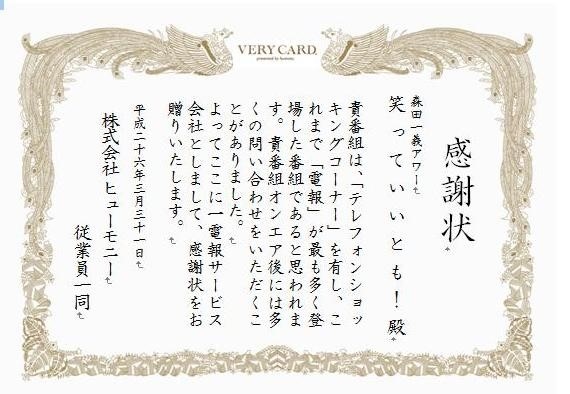 VERY CARD
presented by humony
感謝状
森田一義アワー
笑っていいとも！殿
貴番組は、「テレフォンショッ
キングコーナー」を有し、こ
れまで「電報」が最も多く登
場した番組であると思われま
す。貴番組オンエア後には多
くの問い合わせをいただくこ
とがありました。
よってここに一電報サービス
会社としまして、感謝状をお
贈りいたします。
平成二十六年三月三十一日
株式会社 ヒューモニー
従業員一同